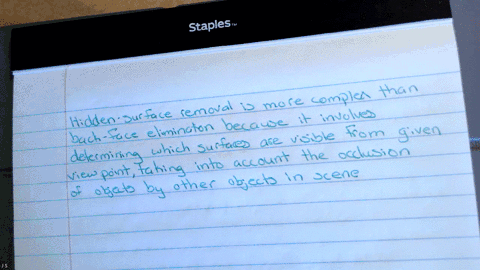 Staples
Hidden-surface removal is more complex than
back-face elimination because it involves
determining which surfaces are visible from given
view point, taking into account the occlusion
of objects by other objects in scene